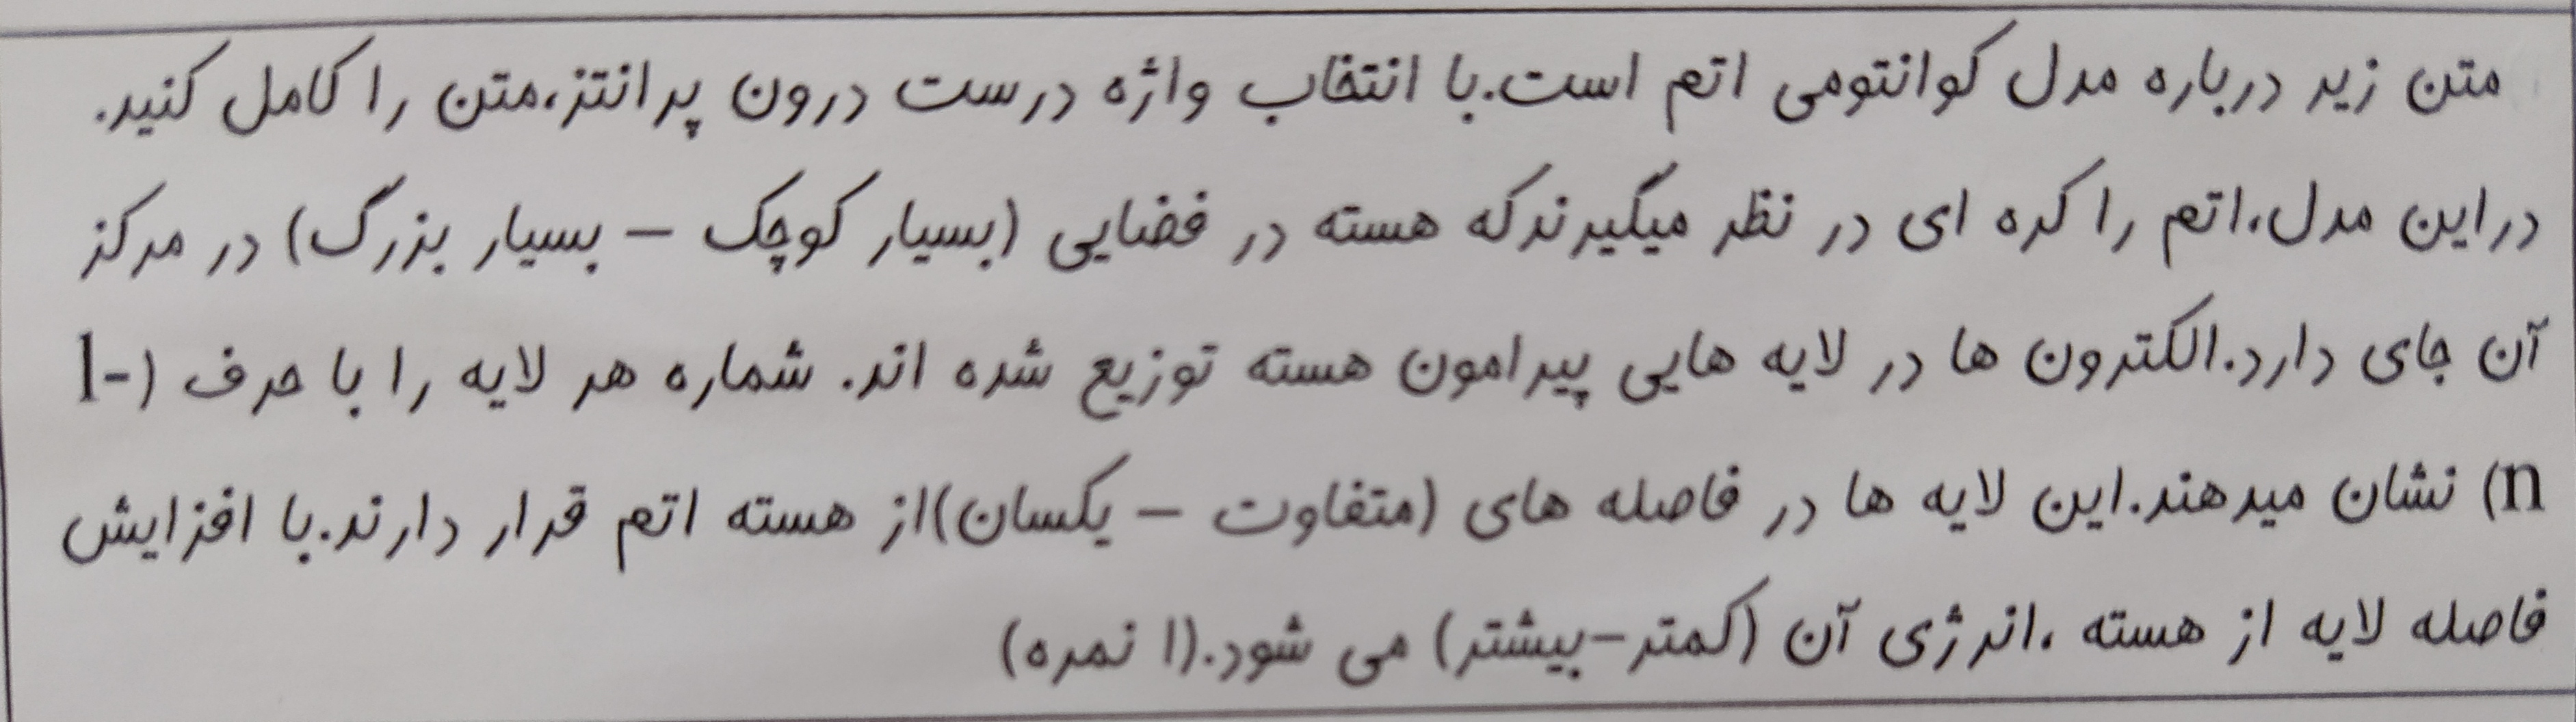 متن زیر درباره مدل کوانتومی اتم است.با انتخاب واژه درست درون پرانتز،متن را کامل کنید.
دراین مدل،اتم را کره ای در نظر میگیرندکه هسته در فضایی (بسیار کوچک – بسیار بزرگ) در مرکز
آن جای دارد.الکترون ها در لایه هایی پیرامون هسته توزیع شده اند. شماره هر لایه را با حرف (l-
n) نشان میدهند.این لایه ها در فاصله های (متفاوت – یکسان)از هسته اتم قرار دارند.با افزایش
فاصله لایه از هسته ،انرژی آن (کمتر–بیشتر) می شود.(۱ نمره)